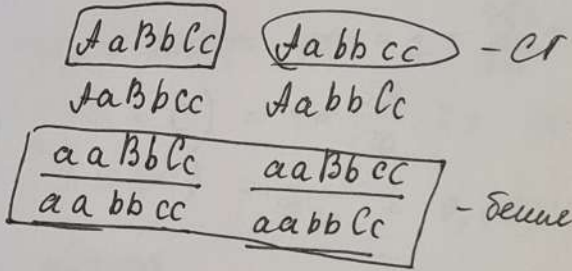 AaBbCc Aabbcc - СГ
AaBbcc AabbCc
aaBbCc aaBbcc
aabbcc aabbCc - белые